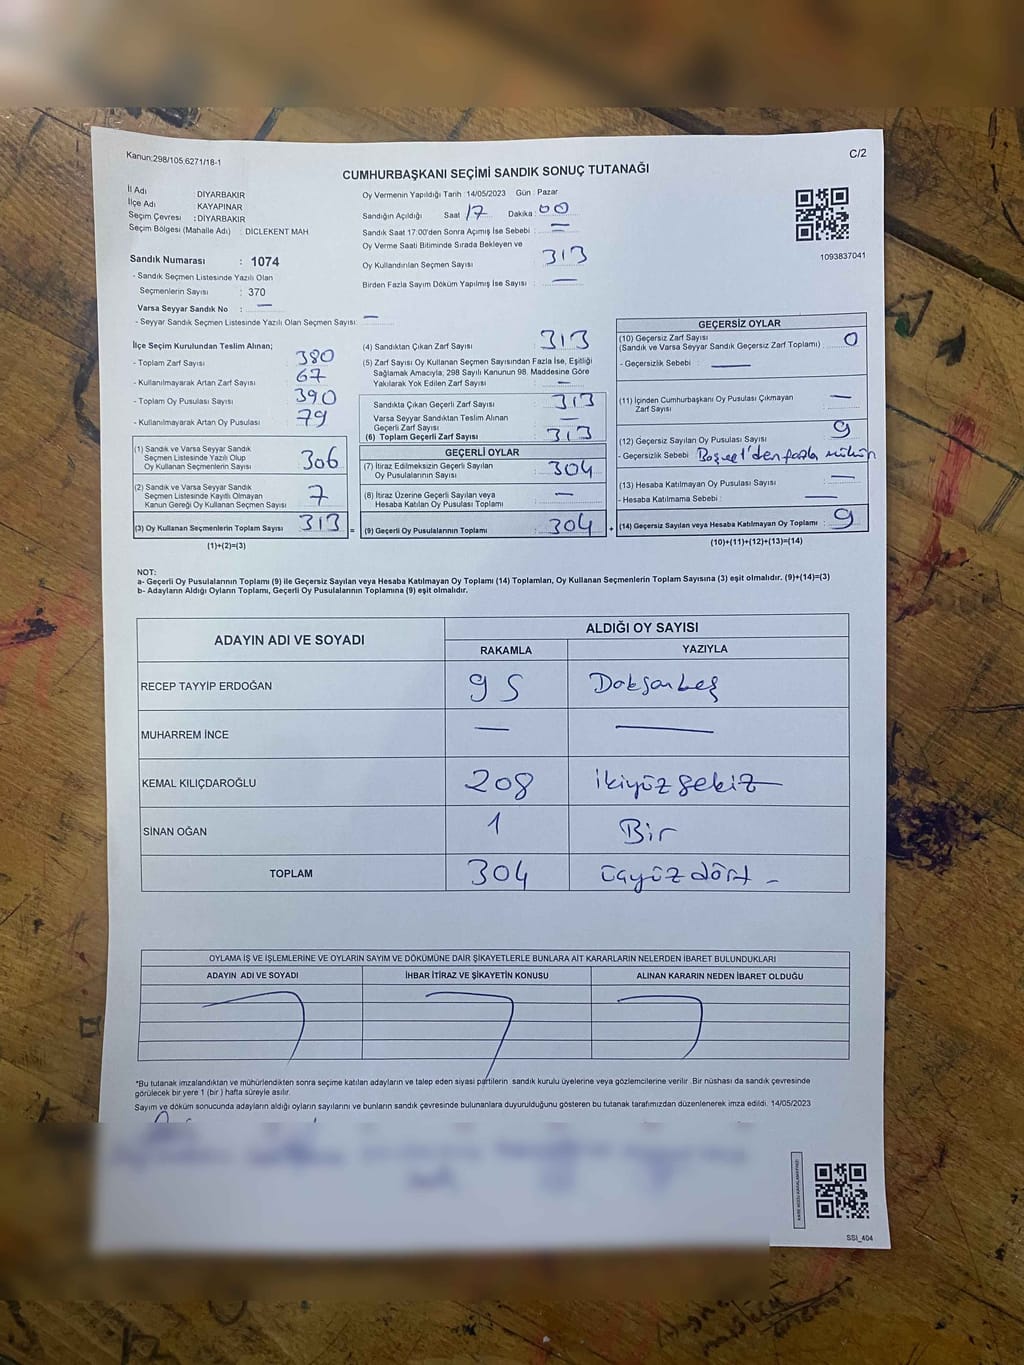 Kanun:298/105,6271/18-1
C/2
CUMHURBAŞKANI SEÇİMİ SANDIK SONUÇ TUTANAĞI
İl Adı DİYARBAKIR
İlçe Adı KAYAPINAR
Seçim Çevresi : DİYARBAKIR
Seçim Bölgesi (Mahalle Adı) : DİCLEKENT MAH
Oy Vermenin Yapıldığı Tarih :14/05/2023 Gün : Pazar
Sandığın Açıldığı Saat 17 Dakika : 00
Sandık Saat 17:00'den Sonra Açımış İse Sebebi : —
Oy Verme Saati Bitiminde Sırada Bekleyen ve
Oy Kullandırılan Seçmen Sayısı : 313
Birden Fazla Sayım Döküm Yapılmış İse Sayısı : —
1093837041
Sandık Numarası : 1074
- Sandık Seçmen Listesinde Yazılı Olan
Seçmenlerin Sayısı : 370
Varsa Seyyar Sandık No : —
- Seyyar Sandık Seçmen Listesinde Yazılı Olan Seçmen Sayısı: —
İlçe Seçim Kurulundan Teslim Alınan;
- Toplam Zarf Sayısı : 380
- Kullanılmayarak Artan Zarf Sayısı : 67
- Toplam Oy Pusulası Sayısı : 390
- Kullanılmayarak Artan Oy Pusulası : 79
(1) Sandık ve Varsa Seyyar Sandık
Seçmen Listesinde Yazılı Olup
Oy Kullanan Seçmenlerin Sayısı : 306
(2) Sandık ve Varsa Seyyar Sandık
Seçmen Listesinde Kayıtlı Olmayan
Kanun Gereği Oy Kullanan Seçmen Sayısı : 7
(3) Oy Kullanan Seçmenlerin Toplam Sayısı : 313 =
(1)+(2)=(3)
(4) Sandıktan Çıkan Zarf Sayısı : 313
(5) Zarf Sayısı Oy Kullanan Seçmen Sayısından Fazla İse, Eşitliği
Sağlamak Amacıyla; 298 Sayılı Kanunun 98. Maddesine Göre
Yakılarak Yok Edilen Zarf Sayısı : —
Sandıkta Çıkan Geçerli Zarf Sayısı : 313
Varsa Seyyar Sandıktan Teslim Alınan
Geçerli Zarf Sayısı : —
(6) Toplam Geçerli Zarf Sayısı : 313
GEÇERLİ OYLAR
(7) İtiraz Edilmeksizin Geçerli Sayılan
Oy Pusulalarının Sayısı : 304
(8) İtiraz Üzerine Geçerli Sayılan veya
Hesaba Katılan Oy Pusulası Toplamı : —
(9) Geçerli Oy Pusulalarının Toplamı : 304 +
GEÇERSİZ OYLAR
(10) Geçersiz Zarf Sayısı
(Sandık ve Varsa Seyyar Sandık Geçersiz Zarf Toplamı) : 0
- Geçersizlik Sebebi : —
(11) İçinden Cumhurbaşkanı Oy Pusulası Çıkmayan
Zarf Sayısı : —
(12) Geçersiz Sayılan Oy Pusulası Sayısı : 9
- Geçersizlik Sebebi 'den fazla mühür
(13) Hesaba Katılmayan Oy Pusulası Sayısı : —
- Hesaba Katılmama Sebebi : —
(14) Geçersiz Sayılan veya Hesaba Katılmayan Oy Toplamı : 9
(10)+(11)+(12)+(13)=(14)
NOT:
a- Geçerli Oy Pusulalarının Toplamı (9) ile Geçersiz Sayılan veya Hesaba Katılmayan Oy Toplamı (14) Toplamları, Oy Kullanan Seçmenlerin Toplam Sayısına (3) eşit olmalıdır. (9)+(14)=(3)
b- Adayların Aldığı Oyların Toplamı, Geçerli Oy Pusulalarının Toplamına (9) eşit olmalıdır.
ADAYIN ADI VE SOYADI
ALDIĞI OY SAYISI
RAKAMLA YAZIYLA
RECEP TAYYİP ERDOĞAN 95 Doksanbeş
MUHARREM İNCE — —
KEMAL KILIÇDAROĞLU 208 ikiyüzsekiz
SİNAN OĞAN 1 Bir
TOPLAM 304 üçyüzdört -
OYLAMA İŞ VE İŞLEMLERİNE VE OYLARIN SAYIM VE DÖKÜMÜNE DAİR ŞİKAYETLERLE BUNLARA AİT KARARLARIN NELERDEN İBARET BULUNDUKLARI
ADAYIN ADI VE SOYADI İHBAR İTİRAZ VE ŞİKAYETİN KONUSU ALINAN KARARIN NEDEN İBARET OLDUĞU
*Bu tutanak imzalandıktan ve mühürlendikten sonra seçime katılan adayların ve talep eden siyasi partilerin sandık kurulu üyelerine veya gözlemcilerine verilir .Bir nüshası da sandık çevresinde
görülecek bir yere 1 (bir ) hafta süreyle asılır.
Sayım ve döküm sonucunda adayların aldığı oyların sayılarını ve bunların sandık çevresinde bulunanlara duyurulduğunu gösteren bu tutanak tarafımızdan düzenlenerek imza edildi. 14/05/2023
SSI_404